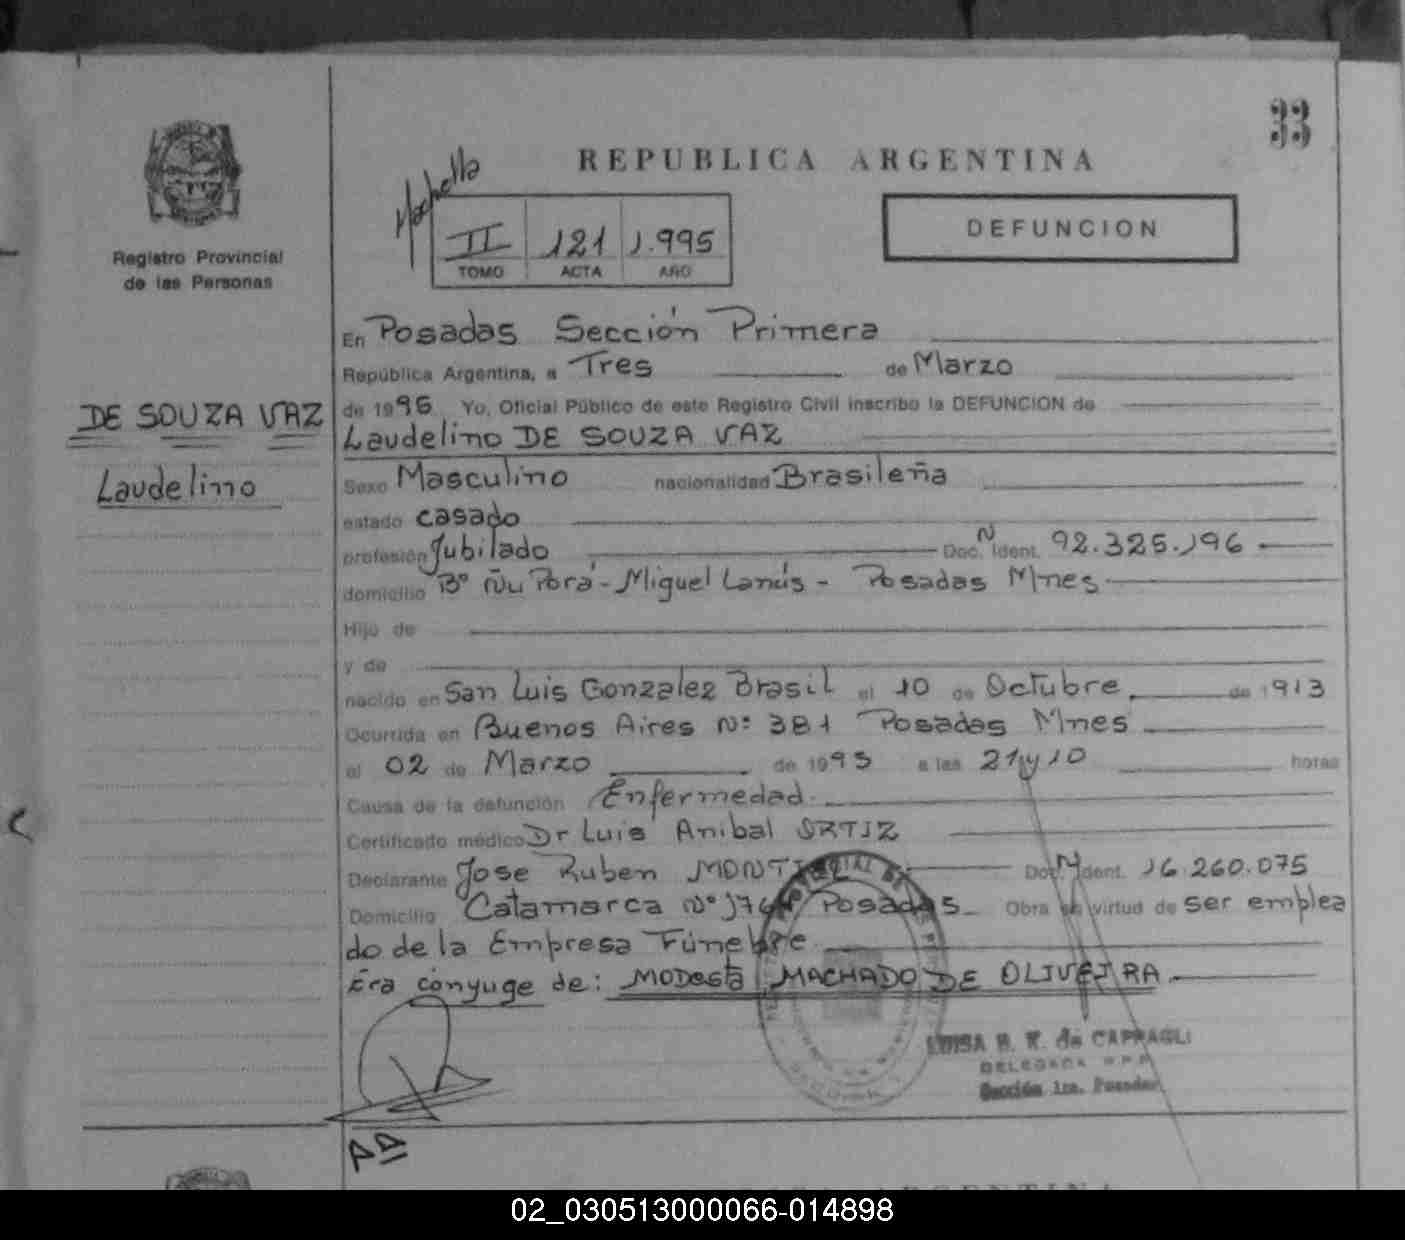 33
REPUBLICA ARGENTINA
II 121 1.995
TOMO ACTA AÑO
DEFUNCION
Registro Provincial
de las Personas
DE SOUZA VAZ
Laudelino
En Posadas Sección Primera
República Argentina, a Tres de Marzo
de 1995 Yo, Oficial Público de este Registro Civil inscribo la DEFUNCION de
Laudelino DE SOUZA VAZ
Sexo Masculino nacionalidad Brasileña
estado casado
profesión Jubilado Doc. N Ident. 92.325.196
domicilio B° Ñu Porá - Miguel Lanús - Posadas Mnes
Hijo de
y de
nacido en San Luis Gonzalez Brasil el 10 de Octubre de 1913
Ocurrida en Buenos Aires N° 381 Posadas Mnes
el 02 de Marzo de 1995 a las 21 y 10 horas
Causa de la defunción Enfermedad
Certificado médico Dr Luis Anibal ORTIZ
Declarante Jose Ruben Doc. N Ident. 16.260.075
Domicilio Catamarca N° Posadas Obra en virtud de ser emplea
do de la Empresa Fúnebre
Era cónyuge de: MODESTA MACHADO DE OLIVEIRA
LUISA B. K. de CAPPAGLI
DELEGADA R.P.P.
Sección 1ra. Posadas
02_030513000066-014898